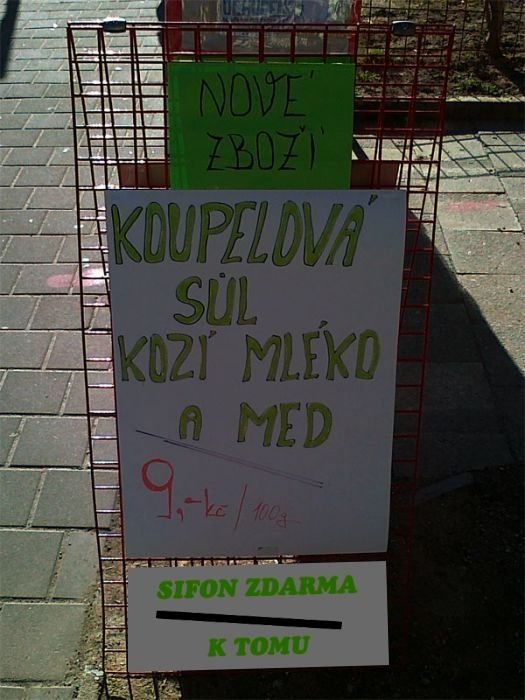 NOVÉ
ZBOŽÍ
KOUPELOVÁ
SŮL
KOZÍ MLÉKO
A MED
9,-kč/100g
SIFON ZDARMA
K TOMU